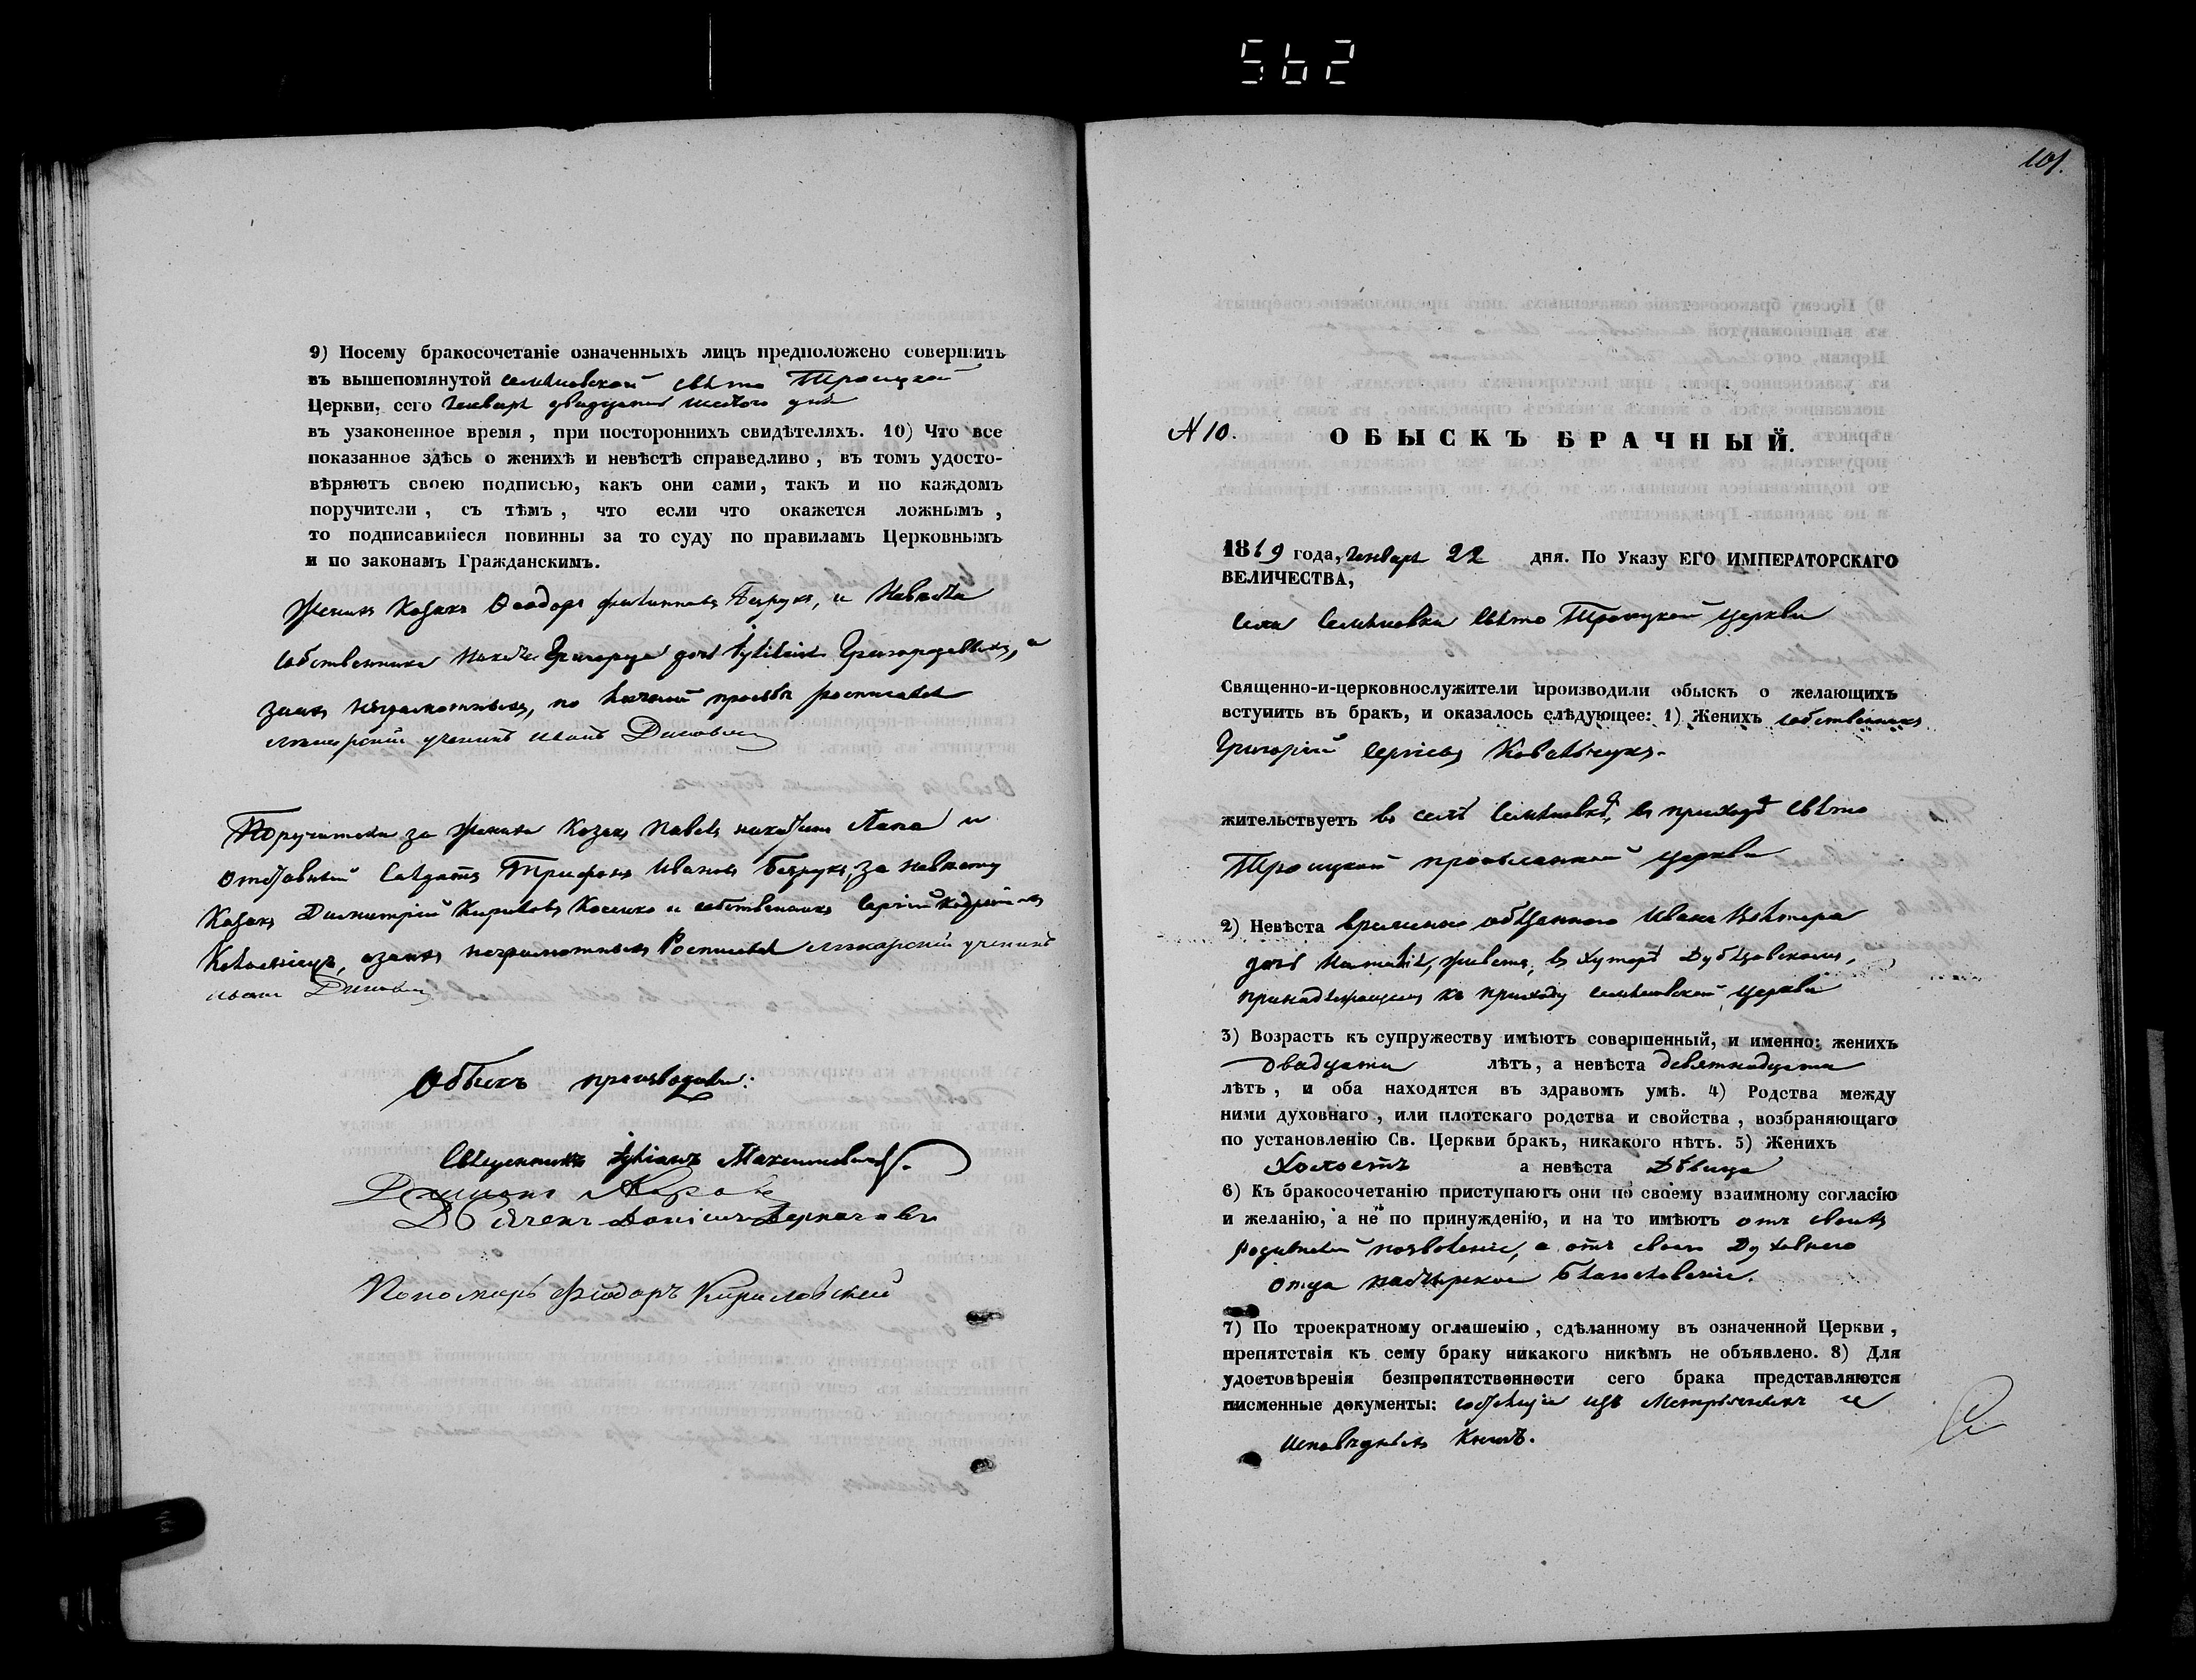 562
9) Посему бракосочетаніе означенныхъ лицъ предположено совершить
въ вышепомянутой Семеновской Свято Троицкой
Церкви, сего Генваря двадцать шестого дня
въ узаконенное время, при постороннихъ свидѣтеляхъ. 10) Что все
показанное здѣсь о женихѣ и невѣстѣ справедливо, въ томъ удосто-
вѣряютъ своею подписью, какъ они сами, такъ и по каждомъ
поручители, съ тѣмъ, что если что окажется ложнымъ,
то подписавшіеся повинны за то суду по правиламъ Церковнымъ
и по законамъ Гражданскимъ.
Женихъ Козакъ Ѳеодоръ Филипповъ Безрукъ, и Невѣста
собственника дочь а
за нихъ неграмотныхъ, по личной просьбѣ росписался
лѣкарскій ученикъ Иванъ
Поручители за жениха Козакъ Павелъ Лапа и
отставный Салдатъ Трифонъ Ивановъ Безрукъ, за невѣсту
Козакъ Димитрій Кириловъ и собственникъ Сергій
а за нихъ неграмотныхъ Росписался лѣкарскій ученикъ
Иванъ
Обыскъ производили:
Священникъ Іуліанъ Максимовичъ.
Дьячекъ
Пономарь Фіодоръ Кириловскій
101.
N 10.
ОБЫСКЪ БРАЧНЫЙ.
1869 года, Генваря 22 дня. По Указу ЕГО ИМПЕРАТОРСКАГО
ВЕЛИЧЕСТВА,
села Семеновки Свято Троицкой церкви
Священно-и-церковнослужители производили обыскъ о желающихъ
вступить въ бракъ, и оказалось слѣдующее: 1) Женихъ собственникъ
Григорій Сергіевъ Ковальчукъ.
жительствуетъ въ селѣ Семеновкѣ, въ приходѣ Свято
Троицкой православной церкви
2) Невѣста временно обязанного Ивана
дочь Наталія, живетъ, въ хуторѣ
принадлежащемъ къ приходу Семеновской церкви
3) Возрастъ къ супружеству имѣютъ совершенный, и именно: женихъ
двадцати лѣтъ, а невѣста девятнадцати
лѣтъ, и оба находятся въ здравомъ умѣ. 4) Родства между
ними духовнаго, или плотскаго родства и свойства, возбраняющаго
по установленію Св. Церкви бракъ, никакого нѣтъ. 5) Женихъ
Холостъ а невѣста Дѣвица
6) Къ бракосочетанію приступаютъ они по своему взаимному согласію
и желанію, а не по принужденію, и на то имѣютъ отъ своихъ
родителей позволеніе, а отъ своего Духовнаго
отца пастырское благословеніе.
7) По троекратному оглашенію, сдѣланному въ означенной Церкви,
препятствія къ сему браку никакого никѣмъ не объявлено. 8) Для
удостовѣренія безпрепятственности сего брака представляются
писменные документы: изъ Метрическихъ и
исповѣдныхъ Книгъ.